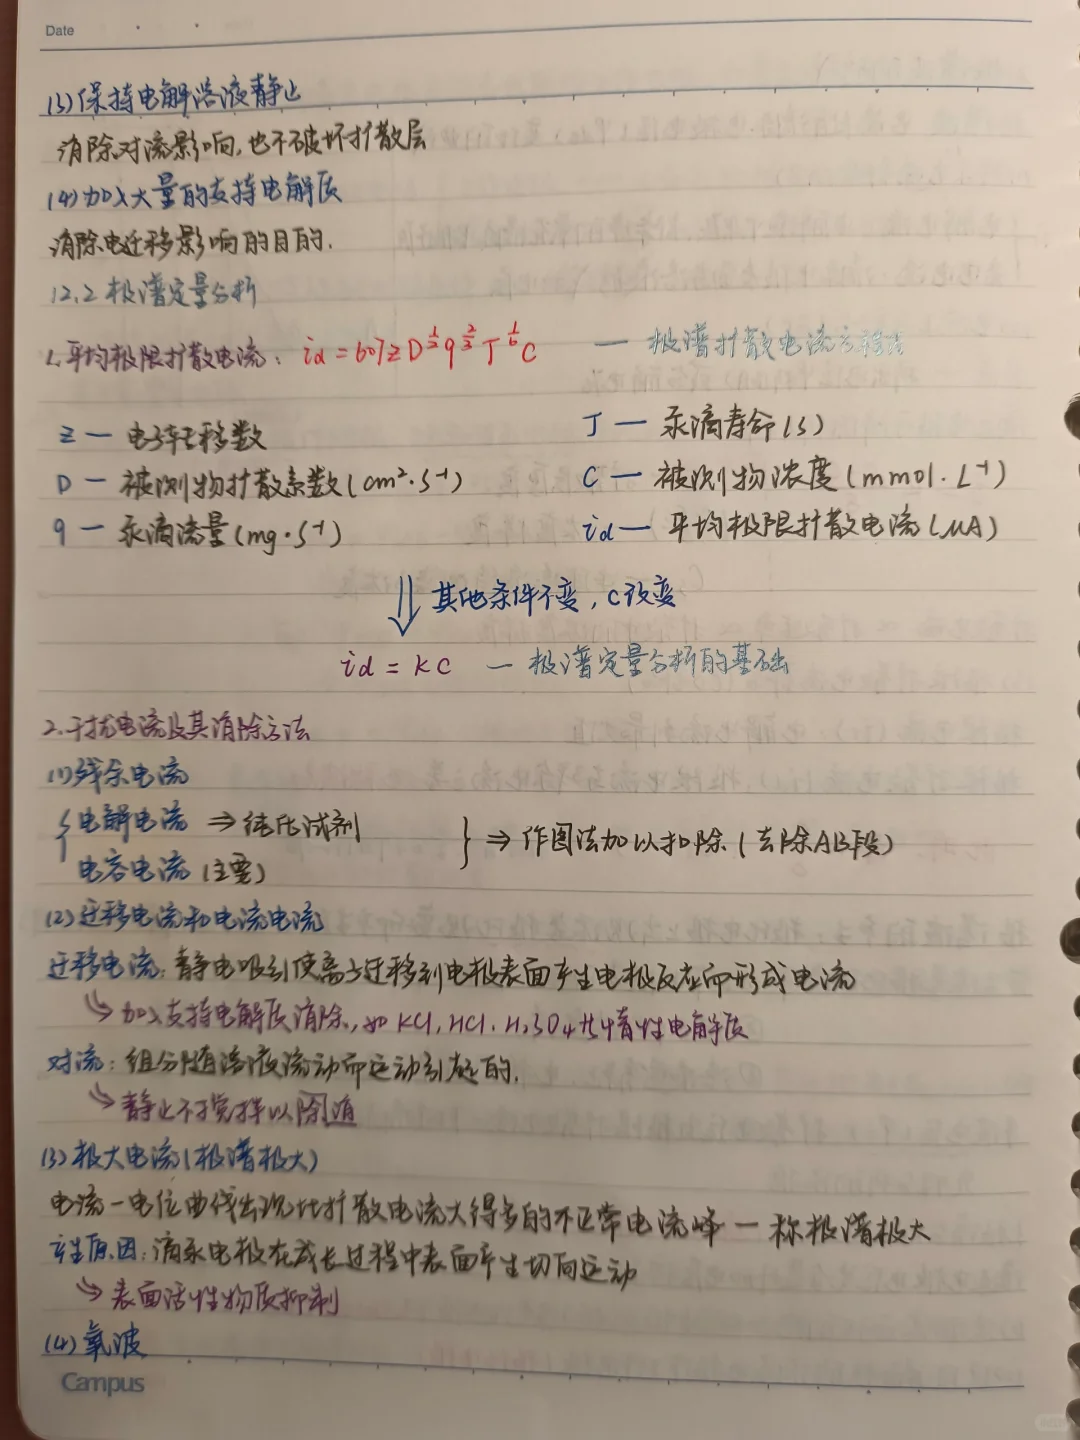 Date
(3)保持电解溶液静止
消除对流影响,也不破坏扩散层
(4)加入大量的支持电解质
消除电迁移影响的目的.
12.2 极谱定量分析
1.平均极限扩散电流: id = 607zD^{1/2}q^{2/3}T^{1/6}C — 极谱扩散电流方程式
Z — 电子转移数
T — 汞滴寿命(s)
D — 被测物扩散系数(cm²·s⁻¹)
C — 被测物浓度(mmol·L⁻¹)
q — 汞滴流量(mg·s⁻¹)
id — 平均极限扩散电流(μA)
⇓ 其他条件不变,C改变
id = KC — 极谱定量分析的基础
2.干扰电流及其消除方法
(1)残余电流
{ 电解电流 ⇒ 纯化试剂
电容电流(主要) } ⇒ 作图法加以扣除(去除AB段)
(2)迁移电流和电流电流
迁移电流:静电吸引使离子迁移到电极表面产生电极反应而形成电流
↳ 加入支持电解质消除,如KCl,HCl,H₂SO₄等惰性电解质
对流:组分随溶液流动而运动引起的.
↳ 静止不搅拌以消除
(3)极大电流(极谱极大)
电流—电位曲线出现比扩散电流大得多的不正常电流峰 — 称极谱极大
产生原因:滴汞电极在成长过程中表面产生切向运动
↳ 表面活性物质抑制
(4)氧波
Campus